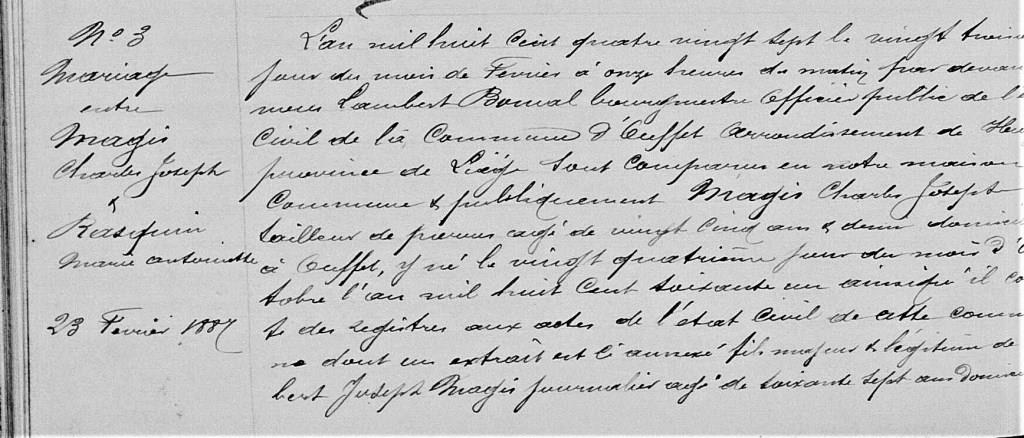 No 3
Mariage
entre
Magis
Charles Joseph
&
Rasquin
Marie antoinette
23 Fevrier 1887
L'an mil huit Cent quatre vingt sept le vingt trois
jour du mois de Fevrier à onze heures du matin par devan
nous Lambert Bomal bourgmestre officier public de l'
Civil de la Commune d'Ouffet arrondissement de Hu
province de Liége sont comparus en notre maison
Commune & publiquement Magis Charles Joseph
tailleur de pierres agé de vingt cinq ans & demi domici
à Ouffet, y né le vingt quatrième jour du mois d'
tobre l'an mil huit Cent soixante un ainsi qu'il co
te des registres aux actes de l'état civil de cette commu
ne dont un extrait est ci annexé fils majeur & légitime de
bert Joseph Magis journalier agé de soixante sept ans domici